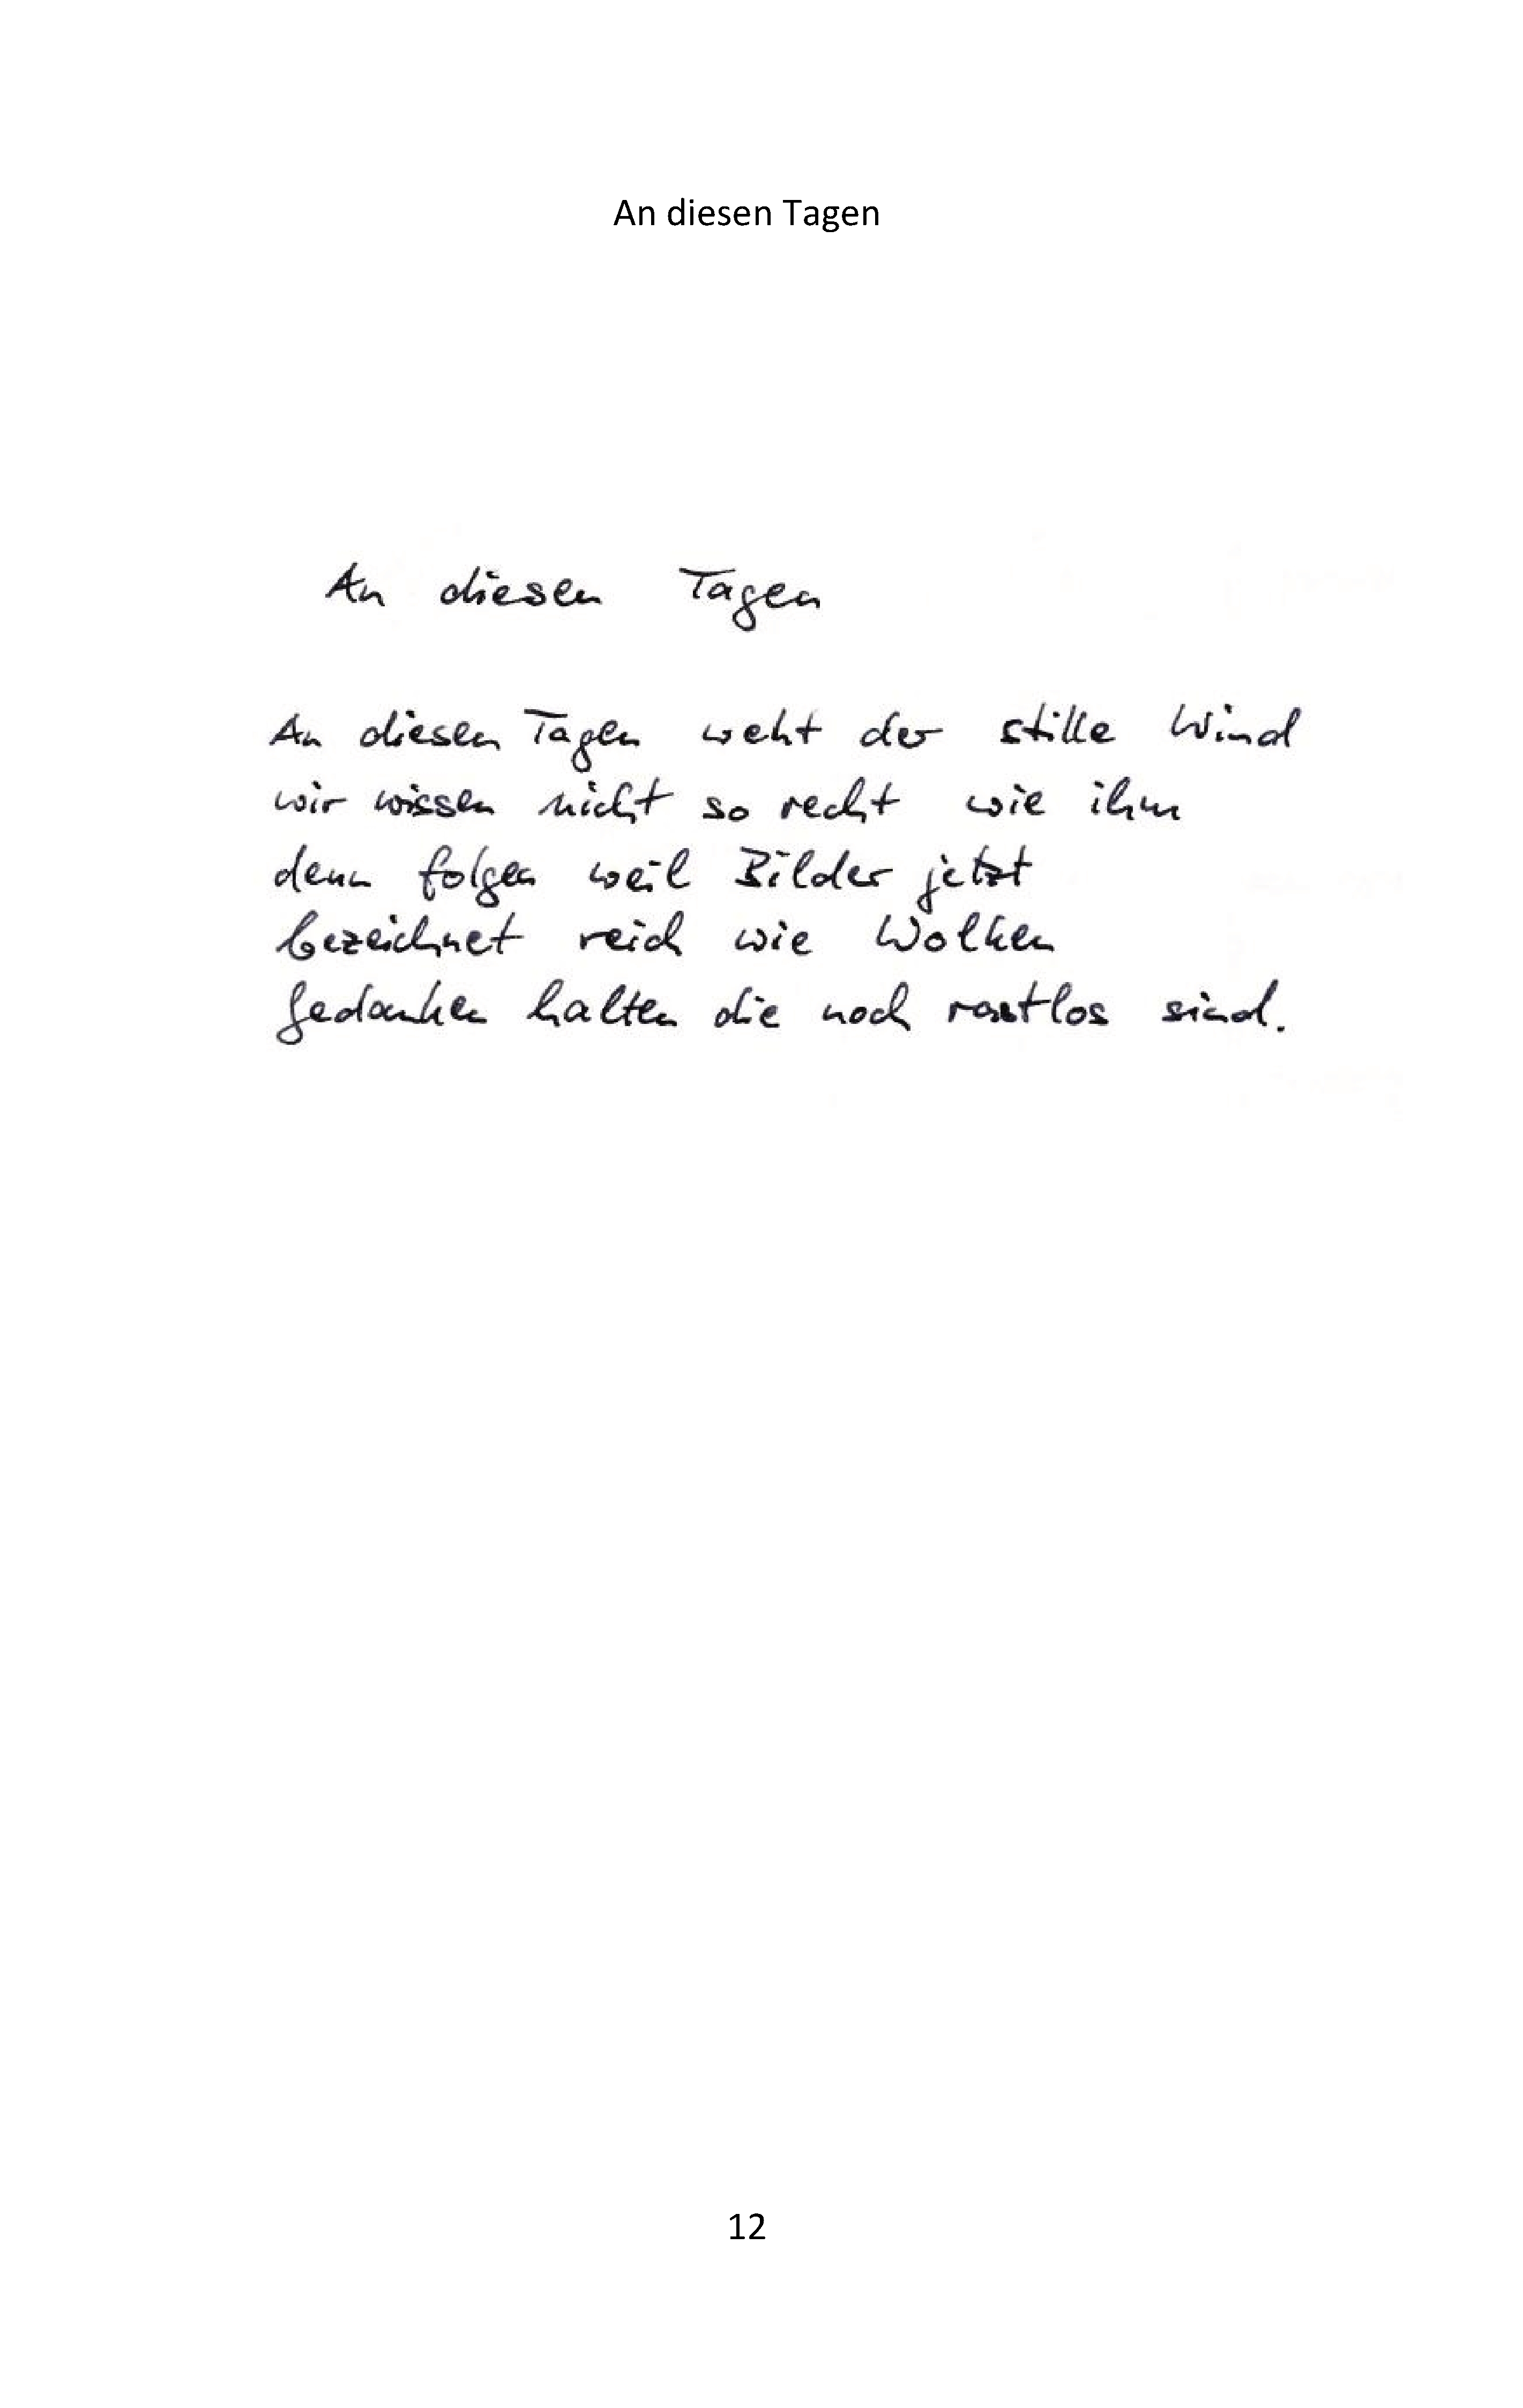 An diesen Tagen
An diesen Tagen
An diesen Tagen weht der stille Wind
wir wissen nicht so recht wie ihm
denn folgen weil Bilder jetzt
bezeichnet reich wie Wolken
Gedanken halten die noch rastlos sind.
12